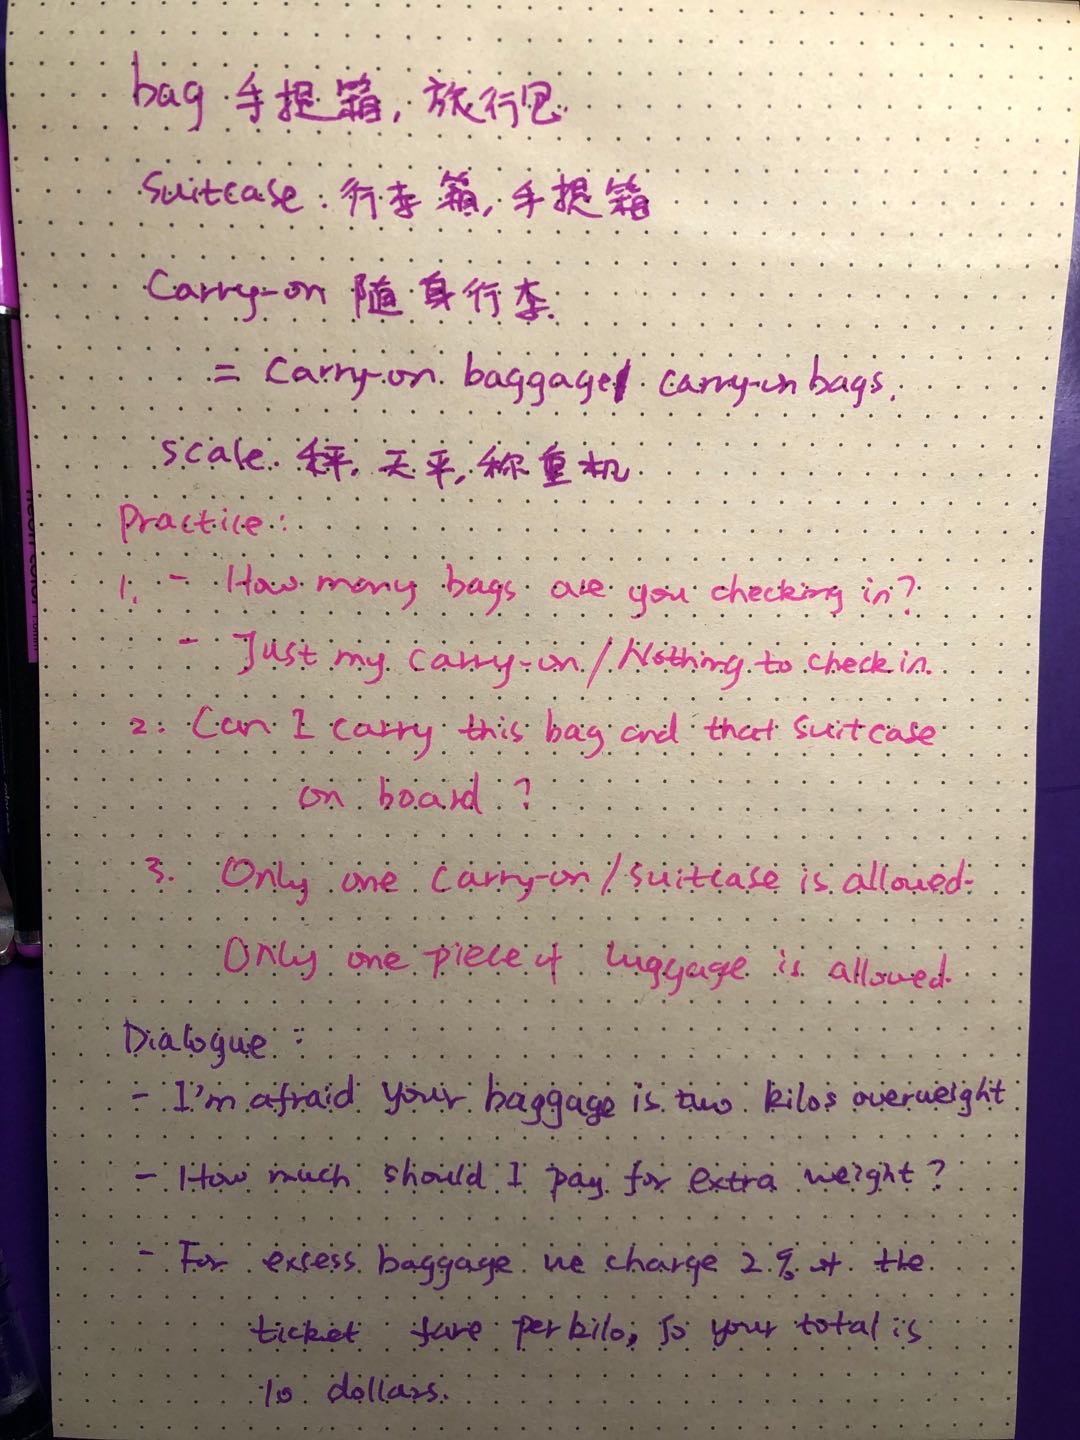 bag 手提箱, 旅行包.
suitcase: 行李箱, 手提箱
Carry-on 随身行李.
= Carry-on baggage/ carry-on bags.
scale. 秤. 天平, 称重机
Practice:
1. - How many bags are you checking in?
- Just my carry-on / Nothing to check in.
2. Can I carry this bag and that suitcase
on board?
3. Only one carry-on / suitcase is allowed.
Only one piece of luggage is allowed.
Dialogue:
- I'm afraid your baggage is two kilos overweight
- How much should I pay for extra weight?
- For excess baggage we charge 2% of the
ticket fare per kilo, so your total is
10 dollars.